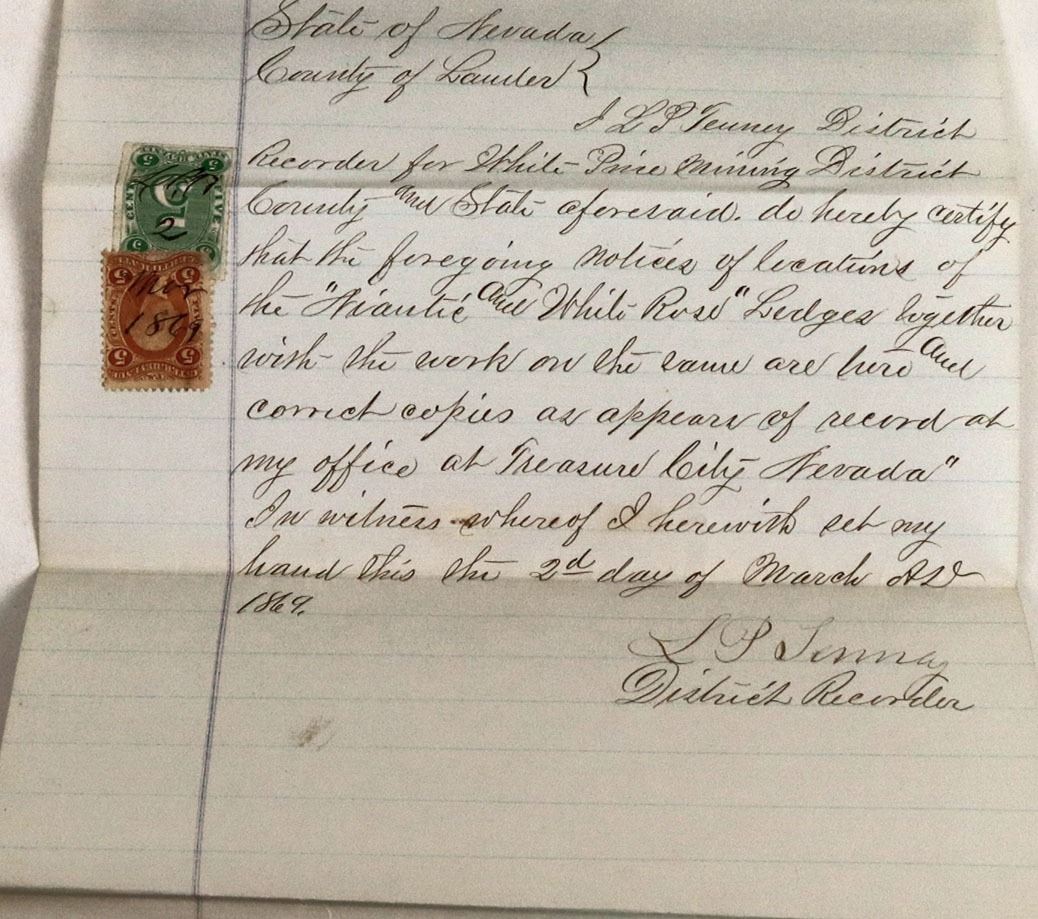 State of Nevada
County of Lander
I L P Tenney District
Recorder for White Pine Mining District
County and State aforesaid. do hereby certify
that the foregoing notices of locations of
the "Niantic and White Rose" Ledges together
with the work on the same are true and
correct copies as appears of record at
my office at Treasure City Nevada"
In witness whereof I herewith set my
hand this the 2d day of March AD
1869.
L P Tenney
District Recorder
5
2
Mar
1869
5 5